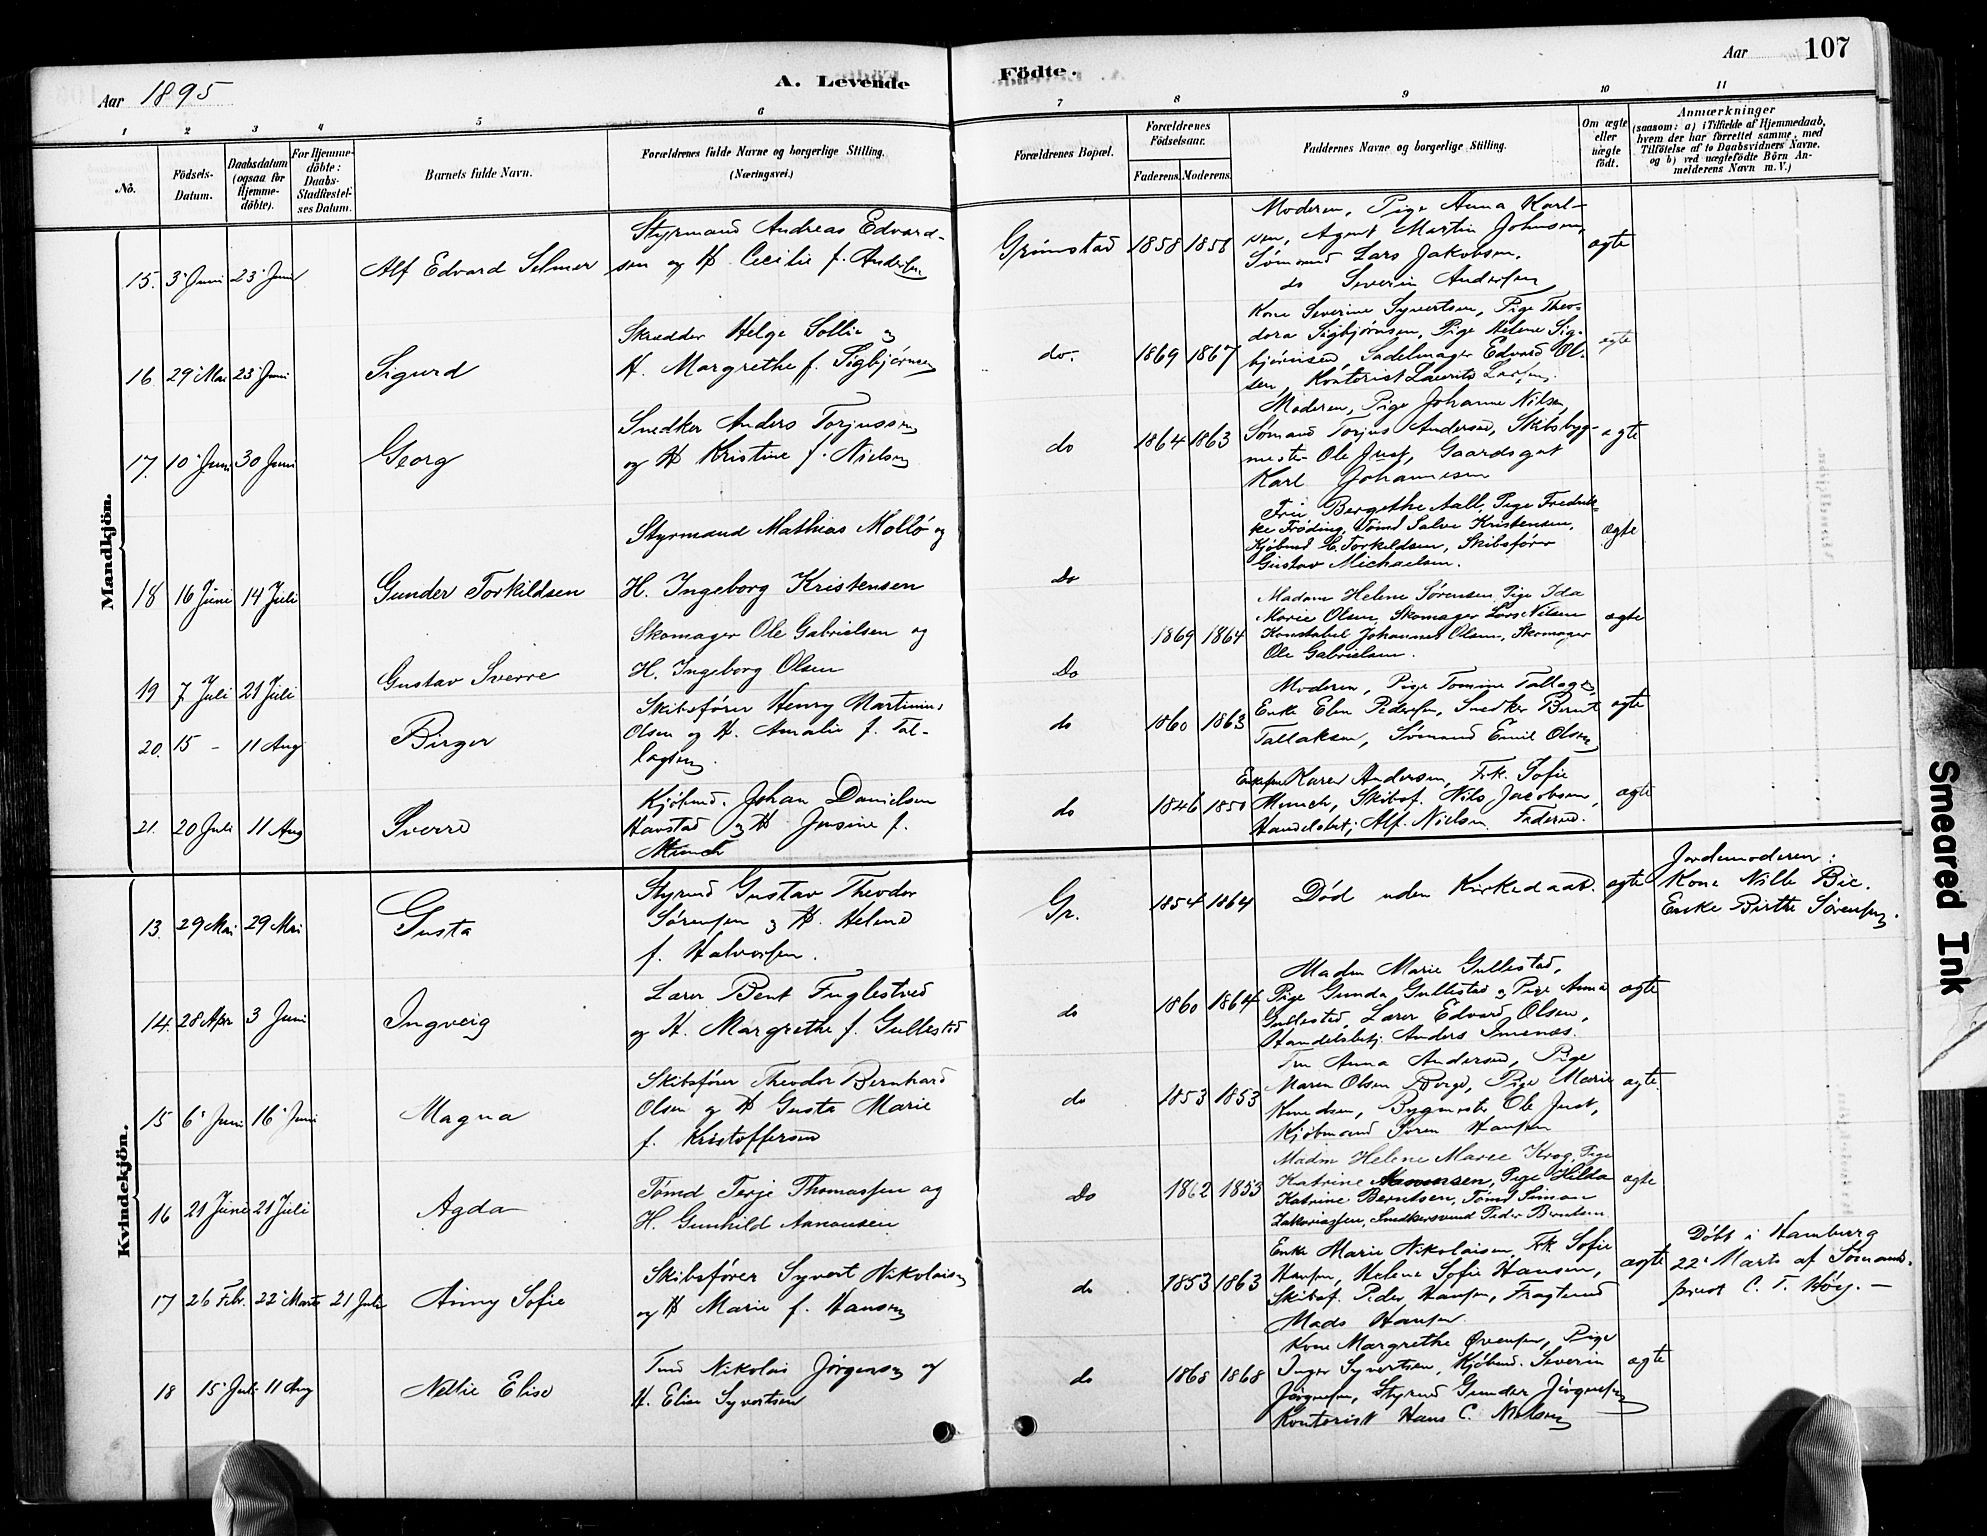 Aar 1895
A. Levende
Födte.
Aar
107
1 2 3 4 5 6 7 8 9 10 11
No.
Födsels-
Datum.
Daabsdatum
(ogsaa for
Hjemme-
döbte).
For Hjemme-
döbte:
Daabs-
Stadfæstel-
ses Datum.
Barnets fulde Navn.
Forældrenes fulde Navne og borgerlige Stilling.
(Næringsvei.)
Forældrenes Bopæl.
Forældrenes
Fødselsaar.
Faderens. Moderens.
Faddernes Navne og borgerlige Stilling.
Om ægte
eller
uægte
født.
Anmærkninger
(saasom: a) i Tilfælde af Hjemmedaab,
hvem der har forrettet samme, med
Tilføielse af to Daabsvidners Navne.
og b) ved uægtefødte Börn An-
melderens Navn m. V.)
Mandkjön.
15. 3' Juni 23' Juni
Alf Edvard Selmer
Styrmand Andreas Edvard-
sen og H. Cecilie f. Andersen
Grimstad 1858 1858
Moderen, Pige Anna Karl-
sen, Agent Martin Johnsen,
Sømand Lars Jakobsen,
do Severin Andersen
ægte
16. 29' Mai 23' Juni
Sigurd
Skrædder Helge Sollie og
H. Margrethe f. Sigbjørnsen
do. 1869 1867
Kone Severine Syvertsen, Pige Theo-
dora Sigbjørnsen, Pige Helene Sig-
bjørnsen, Sadelmager Edvard Ol-
sen, Kontorist Laurits Larsen.
ægte
17. 10' Juni 30 Juni
Georg
Snedker Anders Torjussen
og H. Kristine f. Nielsen
do 1864 1863
Moderen, Pige Johanne Nilsen
Sømand Torjus Andersen, Skibsbyg-
mester Ole Just, Gaardsgut
Karl Johannesen
ægte
18 16 Juni 14 Juli
Gunder Torkildsen
Styrmand Mathias Mollö og
H. Ingeborg Kristensen
Do
Bergethe Aall, Pige Fredrik-
ke Frøding, Tømd Salve Kristensen,
Kjöbmd C. Torkildsen, Skibsfører
Gustav Michaelsen.
ægte
19 7 Juli 21 Juli
Gustav Sverre
Skomager Ole Gabrielsen og
H. Ingeborg Olsen
Do 1869 1864
Madam Helene Sørensen, Pige Ida
Marie Olsen, Skomager Lars Nilsen
Konstabel Johannes Olsen, Skomager
Ole Gabrielsen.
ægte
20. 15 - 11 Aug
Birger
Skibsfører Henry Martinius
Olsen og H. Amalie f. Tal-
lagsen.
do 1860 1863
Moderen, Pige Tomine Tallags,
Enke Elen Pedersen, Snedker Bernt
Tallaksen, Sømand Emil Olsen
ægte
21. 20 Juli 11 Aug
Sverre
Kjöbmd. Johan Danielsen
Havstad og H. Jensine f.
Munch
do 1846 1850
Karen Andersen, Frk. Sofie
Munch, Skibsf. Nils Jacobsen,
Handelsbetj. Alf. Nielsen. Faderen.
ægte
Kvindekjön.
13. 29 Mai 29 Mai
Gusta
Styrmd Gustav Theodor
Sørensen og H. Helene
f. Halvorsen.
Gr. 1854 1864
Død uden Kirkedaab.
ægte
Jordemoderen:
Kone Nille Bie.
Enke Birthe Sørensen.
14. 28 Apr 3 Juni
Ingveig
Lærer Bent Fuglestved
og H. Margrethe f. Gullestad
do 1860 1864
Madm Marie Gullestad,
Pige Gunda Gullestad og Pige Anna
Gullestad, Lærer Edvard Olsen,
Handelsbetj. Anders Imenæs.
ægte
15 6' Juni 16' Juni
Magna
Skibsfører Theodor Bernhard
Olsen og H Gusta Marie
f. Kristoffersen
do 1853 1853
Fru Anna Andersen, Pige
Maren Olsen Berge, Pige Marie
Knudsen, Bygmester Ole Just,
Kjøbmand Søren Hansen
ægte.
16 21 Juni 21 Juli
Agda
Tømd Terje Thomassen og
H. Gunhild Aanonsen
Do 1862 1853
Madm Helene Marie Krog, Pige
Katrine Aanonsen, Pige Hilda
Katrine Berntsen, Tømd Simon
Zakariassen, Snedkersvend Peder Berntsen.
ægte
17 26 Febr. 22' Marts 21 Juli
Anny Sofie
Skibsfører Syvert Nikolaisen
og H Marie f. Hansen
do 1853 1863
Enke Marie Nikolaisen, Frk. Sofie
Hansen, Helene Sofie Hansen,
Skibsf. Peder Hansen,
Mads Hansen
ægte
Döbt i Hamburg
22' Marts af Sømands-
prest C. T. Høy. -
18 15' Juli 11 Aug
Nellie Elise
Tømd Nikolai Jørgensen og
H. Elise Syvertsen
do 1868 1868
Kone Margrethe Evensen, Pige
Inger Syvertsen, Kjöbmd. Severin
Jørgensen, Styrmd Gunder Jörgensen
Kontorist Hans C. Nielsen
ægte
Smeared Ink